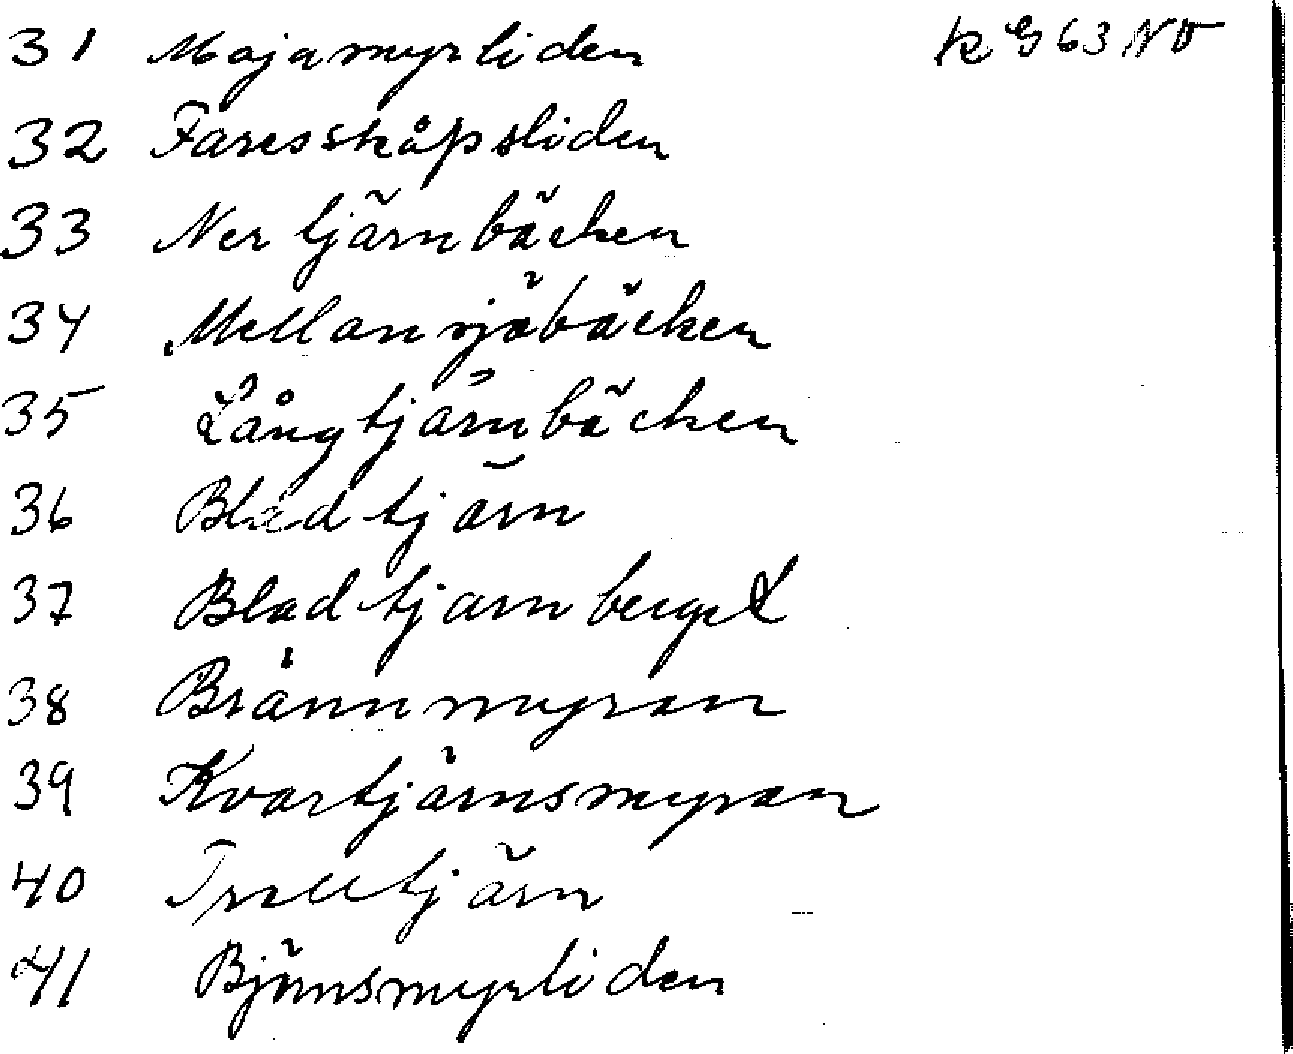 31 Majamyrliden K G 63 NO
32 Faresskåpsliden
33 Nertjärnbäcken
34 Mellansjöbäcken
35 Långtjärnbäcken
36 Bladtjärn
37 Bladtjarnberget
38 Brännmyran
39 Kvartjärnsmyran
40 Trulltjärn
41 Björnsmyrliden